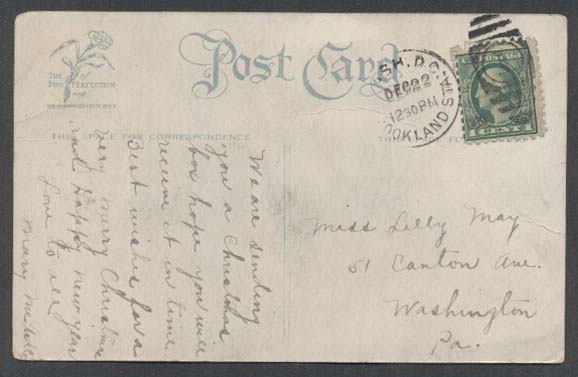 Post Card
THE
PINK OF PERFECTION
THIS SPACE FOR CORRESPONDENCE
WASH. D.C.
DEC 22
12 30 PM
OCKLAND STA
U.S. POSTAGE
1 CENT 1
We are sending
you a Christmas
box hope you will
receive it in time.
Best wishes for a
very merry Christmas
and Happy new year
Love to all
Mary
Miss Lilly May
51 Canton Ave.
Washington
Pa.